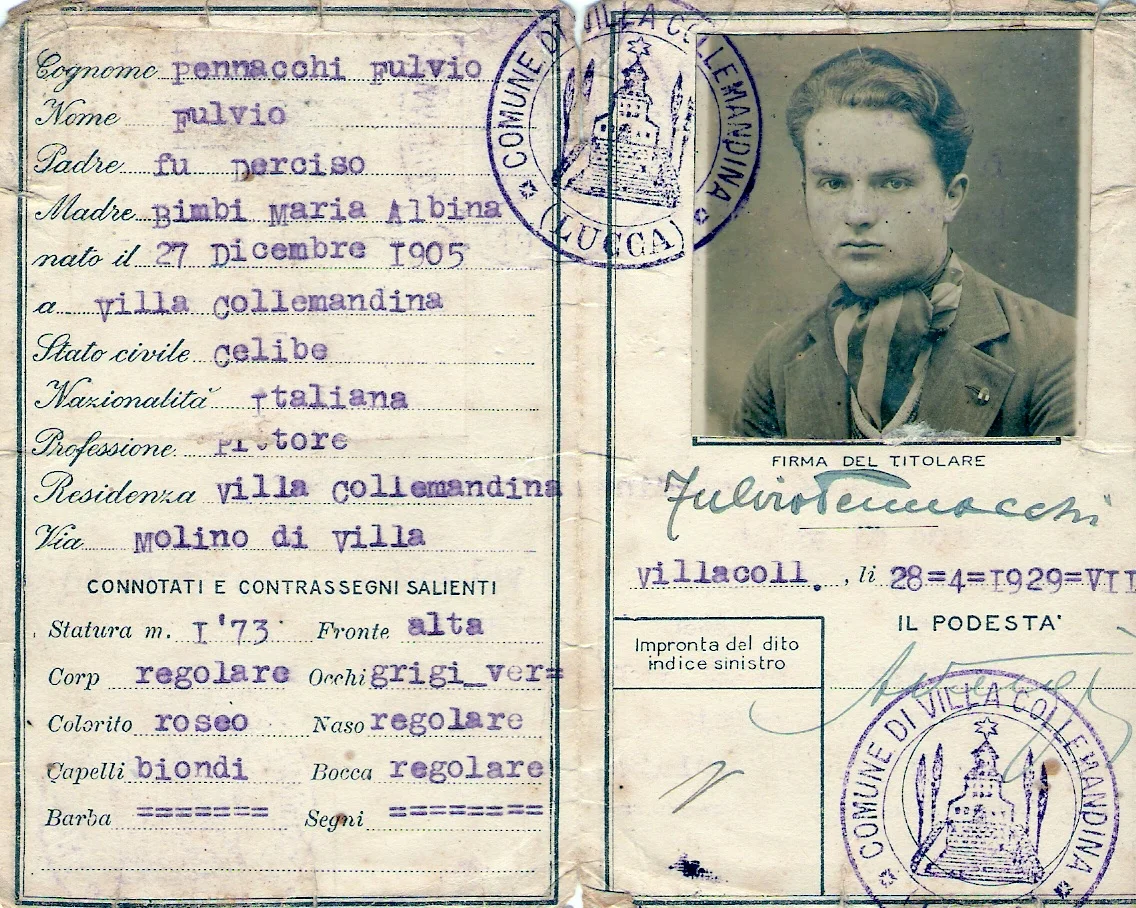 Cognome Pennacchi Fulvio
Nome Fulvio
Padre fu Perciso
Madre Bimbi Maria Albina
nato il 27 Dicembre 1905
a Villa Collemandina
Stato civile Celibe
Nazionalità Italiana
Professione Pittore
Residenza Villa Collemandina
Via Molino di Villa
CONNOTATI E CONTRASSEGNI SALIENTI
Statura m. I'73 Fronte alta
Corp regolare Occhi grigi_ver=
Colorito roseo Naso regolare
Capelli biondi Bocca regolare
Barba ======= Segni ========
COMUNE DI VILLA COLLEMANDINA
(LUCCA)
FIRMA DEL TITOLARE
Fulvio Pennacchi
Villacoll. , li 28=4=I929=VII
IL PODESTA'
Impronta del dito
indice sinistro
COMUNE DI VILLA COLLEMANDINA